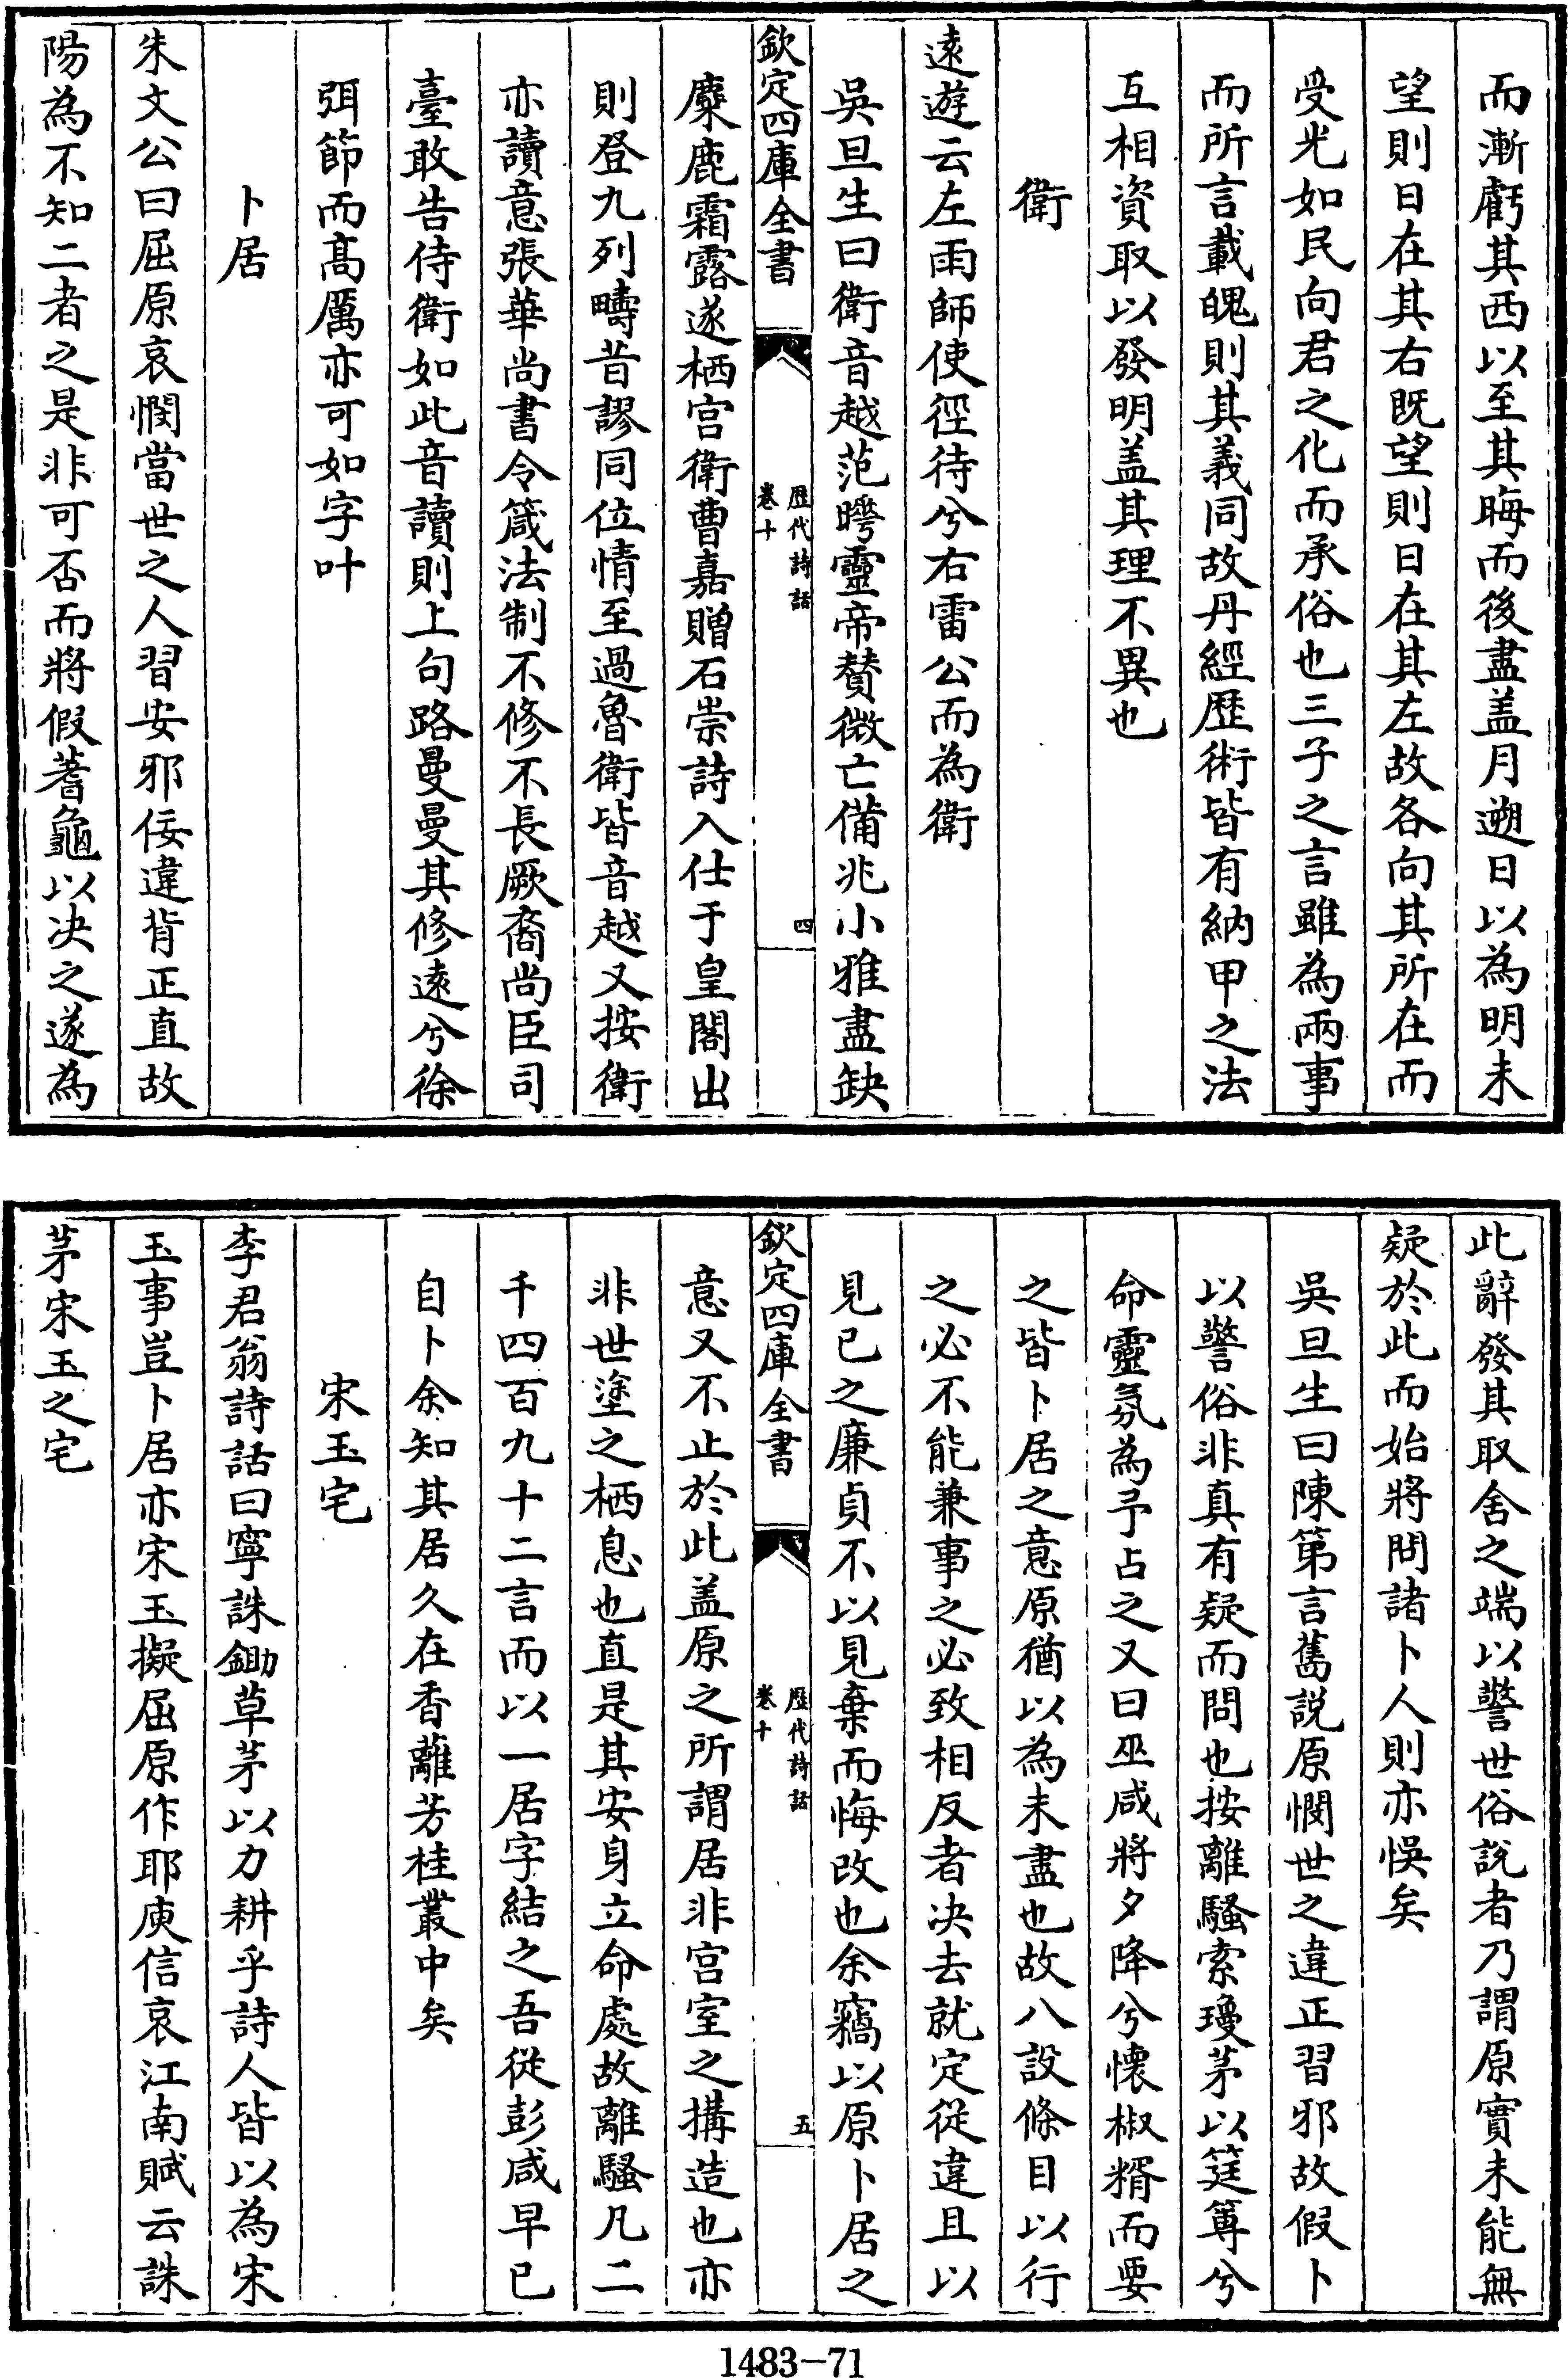 而漸虧其西以至其晦而後盡盖月遡日以為明未
望則日在其右既望則日在其左故各向其所在而
受光如民向君之化而承俗也三子之言雖為兩事
而所言載魄則其義同故丹經歴術皆有納甲之法
互相資取以發明盖其理不異也
衛
遠遊云左雨師使徑待兮右雷公而為衛
吳旦生曰衛音越范曄靈帝賛微亡備兆小雅盡缺
欽定四庫全書
歴代詩話
卷十
四
麋鹿霜露遂栖宫衛曹嘉贈石崇詩入仕于皇閣出
則登九列疇昔謬同位情至過魯衛皆音越又按衛
亦讀意張華尚書令箴法制不修不長厥裔尚臣司
臺敢告侍衛如此音讀則上句路曼曼其修遠兮徐
弭節而髙厲亦可如字叶
卜居
朱文公曰屈原哀憫當世之人習安邪佞違背正直故
陽為不知二者之是非可否而將假蓍龜以决之遂為
此辭發其取舍之端以警世俗說者乃謂原實未能無
疑於此而始將問諸卜人則亦悞矣
吳旦生曰陳第言舊説原憫世之違正習邪故假卜
以警俗非真有疑而問也按離騷索瓊茅以筳篿兮
命靈氛為予占之又曰巫咸將夕降兮懷椒糈而要
之皆卜居之意原猶以為未盡也故八設條目以行
之必不能兼事之必致相反者决去就定從違且以
見已之廉貞不以見棄而悔改也余竊以原卜居之
欽定四庫全書
歴代詩話
卷十
五
意又不止於此盖原之所謂居非宫室之搆造也亦
非世塗之栖息也直是其安身立命處故離騷凡二
千四百九十二言而以一居字結之吾從彭咸早已
自卜余知其居久在香蘺芳桂叢中矣
宋玉宅
李君翁詩話曰寧誅鋤草茅以力耕乎詩人皆以為宋
玉事豈卜居亦宋玉擬屈原作耶庾信哀江南賦云誅
茅宋玉之宅
1483-71